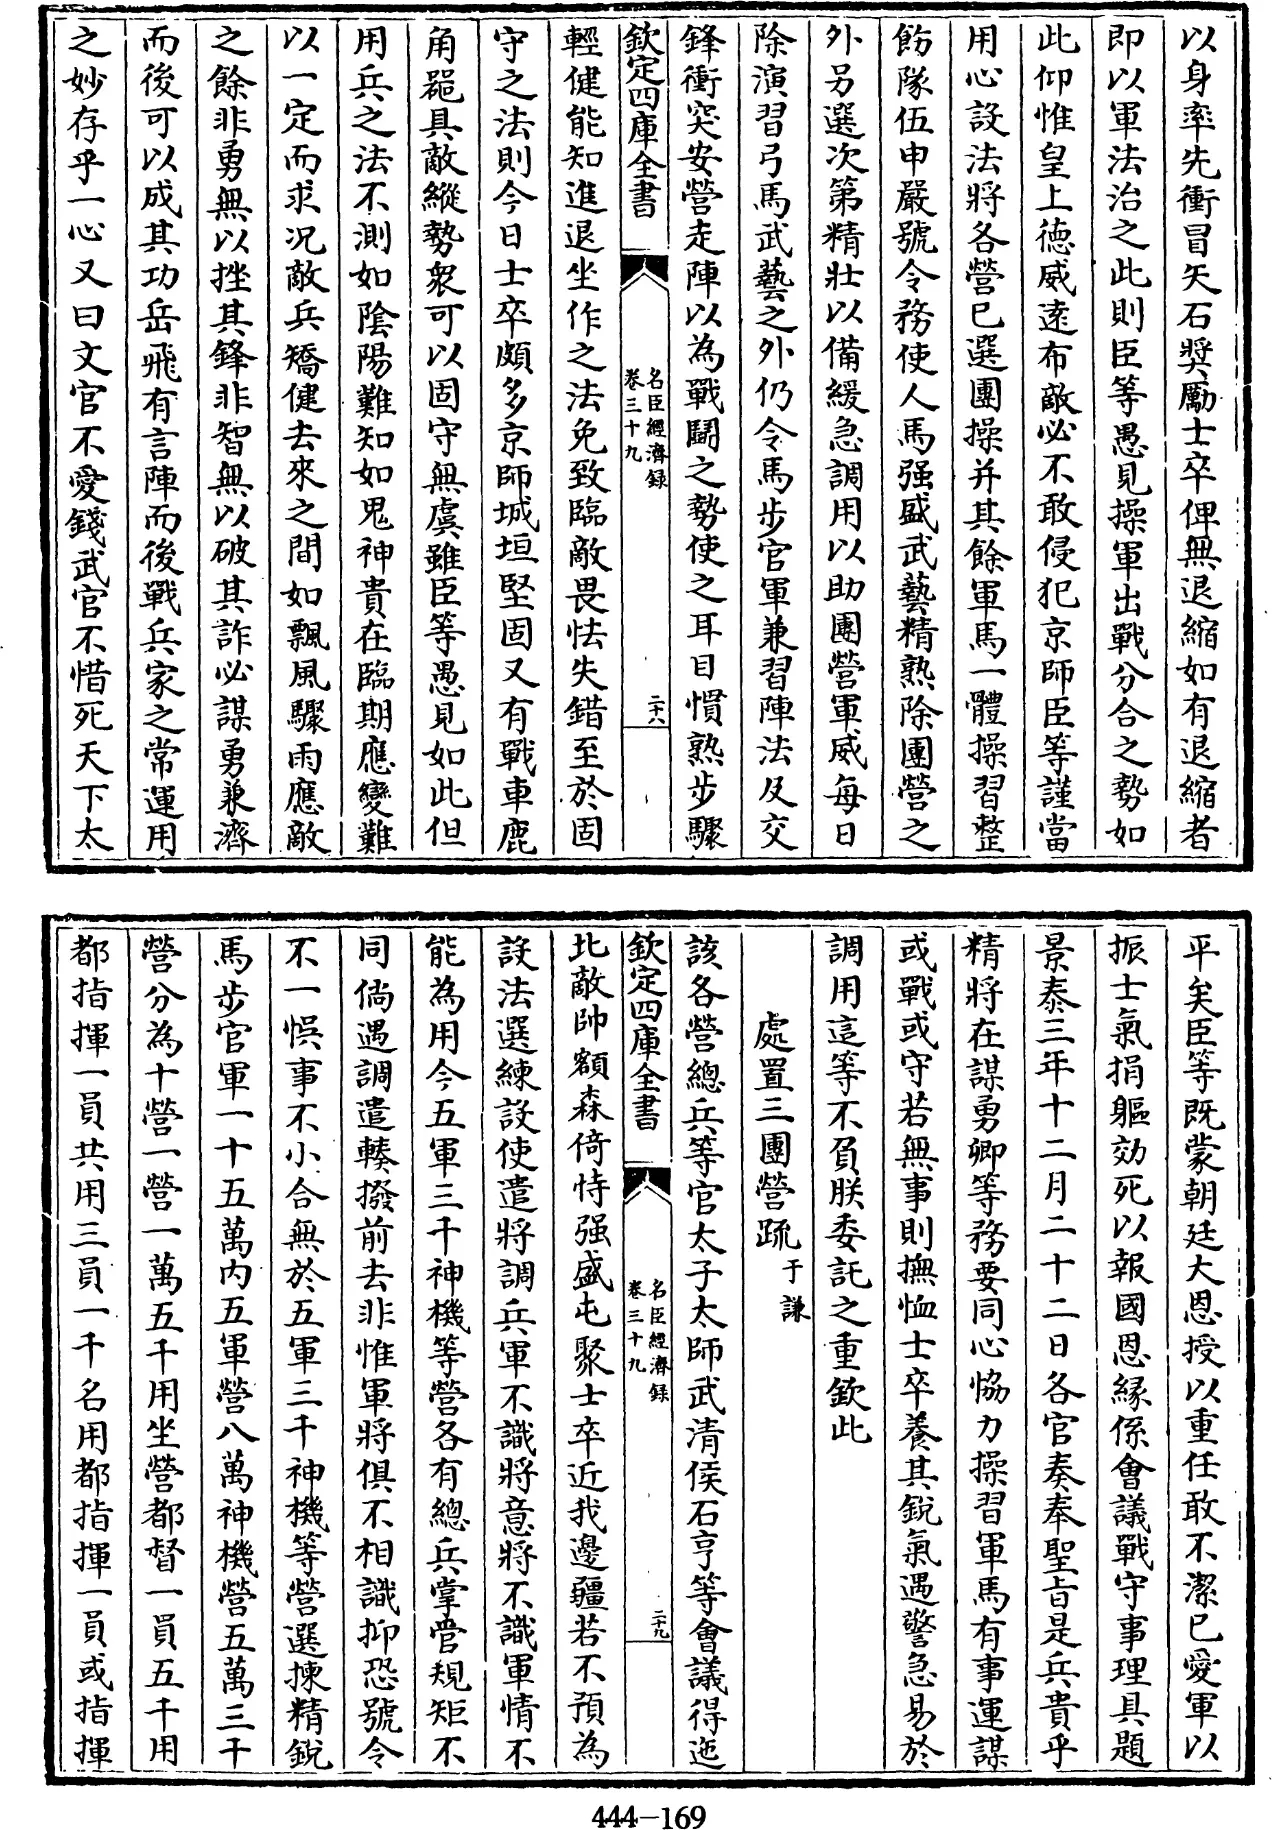 以身率先衝冒矢石奬勵士卒俾無退縮如有退縮者
即以軍法治之此則臣等愚見操軍出戰分合之勢如
此仰惟皇上德威遠布敵必不敢侵犯京師臣等謹當
用心設法將各營已選團操并其餘軍馬一體操習整
飭隊伍申嚴號令務使人馬强盛武藝精熟除團營之
外另選次第精壯以備緩急調用以助團營軍威每日
除演習弓馬武藝之外仍令馬步官軍兼習陣法及交
鋒衝突安營走陣以為戰鬭之勢使之耳目慣熟步驟
欽定四庫全書
名臣經濟録
卷三十九
二十八
輕健能知進退坐作之法免致臨敵畏怯失錯至於固
守之法則今日士卒頗多京師城垣堅固又有戰車鹿
角器具敵縱勢衆可以固守無虞雖臣等愚見如此但
用兵之法不測如陰陽難知如鬼神貴在臨期應變難
以一定而求况敵兵矯健去來之間如飄風驟雨應敵
之餘非勇無以挫其鋒非智無以破其詐必謀勇兼濟
而後可以成其功岳飛有言陣而後戰兵家之常運用
之妙存乎一心又曰文官不愛錢武官不惜死天下太
平矣臣等既蒙朝廷大恩授以重任敢不潔已愛軍以
振士氣捐軀効死以報國恩緣係會議戰守事理具題
景泰三年十二月二十二日各官奏奉聖旨是兵貴乎
精將在謀勇卿等務要同心協力操習軍馬有事運謀
或戰或守若無事則撫恤士卒養其銳氣遇警急易於
調用這等不負朕委託之重欽此
處置三團營疏 于謙
該各營總兵等官太子太師武清侯石亨等會議得迤
欽定四庫全書
名臣經濟録
卷三十九
二十九
北敵帥額森倚恃强盛屯聚士卒近我邊疆若不預為
設法選練設使遣將調兵軍不識將意將不識軍情不
能為用今五軍三千神機等營各有總兵掌管規矩不
同倘遇調遣轃撥前去非惟軍將俱不相識抑恐號令
不一悞事不小合無於五軍三千神機等營選揀精銳
馬步官軍一十五萬内五軍營八萬神機營五萬三千
營分為十營一營一萬五千用坐營都督一員五千用
都指揮一員共用三員一千名用都指揮一員或指揮
444-169